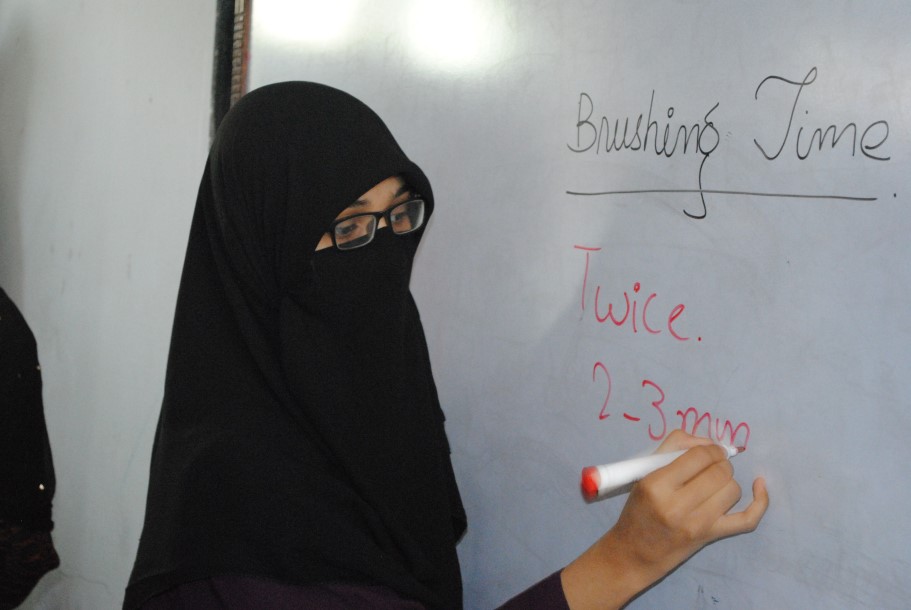 Brushing Time.
Twice.
2-3 min